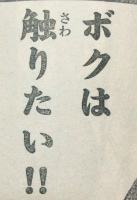 ボクは
触りたい!!
さわ